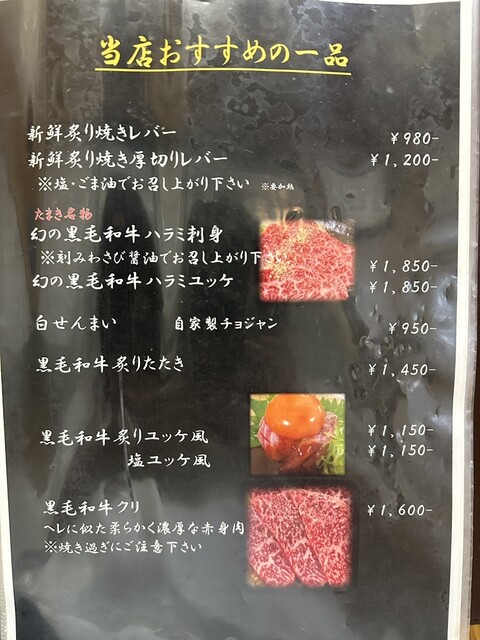 当店おすすめの一品
新鮮炙り焼きレバー ¥980-
新鮮炙り焼き厚切りレバー ¥1,200-
※塩・ごま油でお召し上がり下さい ※要加熱
たまき名物
幻の黒毛和牛ハラミ刺身
※刻みわさび醤油でお召し上がり下さい ¥1,850-
幻の黒毛和牛ハラミユッケ ¥1,850-
白せんまい 自家製チョジャン ¥950-
黒毛和牛炙りたたき ¥1,450-
黒毛和牛炙りユッケ風 ¥1,150-
塩ユッケ風 ¥1,150-
黒毛和牛クリ ¥1,600-
ヘレに似た柔らかく濃厚な赤身肉
※焼き過ぎにご注意下さい